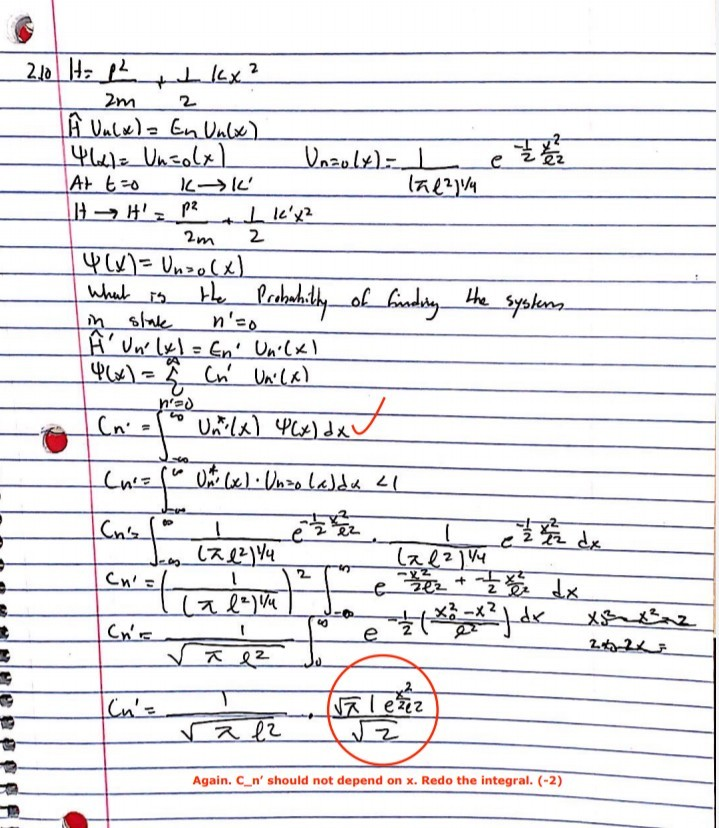 2.10 H = P²/2m + 1/2 kx²
Ĥ Un(x) = En Un(x)
Ψ(x) = Un=0(x) Un=0(x) = 1/(πl²)^1/4 e^(-1/2 x²/l²)
At t=0 k → k'
H → H' = P²/2m + 1/2 k'x²
Ψ(x) = Un=0(x)
What is the Probability of finding the system
in state n'=0
Ĥ' Un'(x) = En' Un'(x)
Ψ(x) = Σ_(n'=0)^∞ Cn' Un'(x)
Cn' = ∫_(-∞)^∞ Un'*(x) Ψ(x) dx ✓
Cn' = ∫_(-∞)^∞ Un'*(x) · Un=0(x) dx < 1
Cn' = ∫_(-∞)^∞ 1/(πl²)^1/4 e^(-1/2 x²/l²) · 1/(πl²)^1/4 e^(-1/2 x²/l²) dx
Cn' = (1/(πl²)^1/4)² ∫_(-∞)^∞ e^(-x²/2l² + -1/2 x²/l²) dx
Cn' = 1/√πl² ∫_0^∞ e^(-1/2 (x₀²-x²/l²)) dx
Cn' = 1/√πl² · √π l e^(x²/2l²)/√2
Again. C_n' should not depend on x. Redo the integral. (-2)